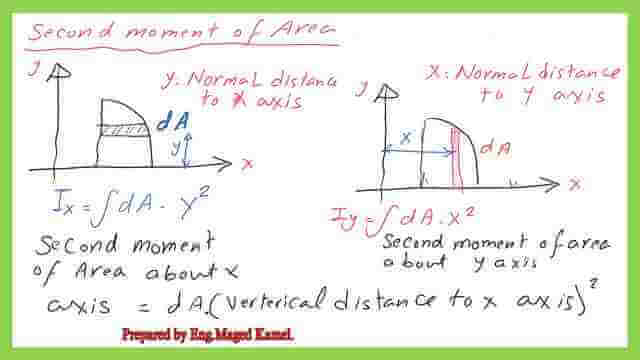 Second moment of Area
y
y. Normal distance
to x axis
dA
y
x
Ix = ∫dA · y²
Second moment
of Area about x
x: Normal distance
to y axis
y
x
dA
x
Iy = ∫dA · x²
Second moment of area
about y axis
axis = dA.(verterical distance to x axis)²
Prepared by Eng.Maged Kamel.